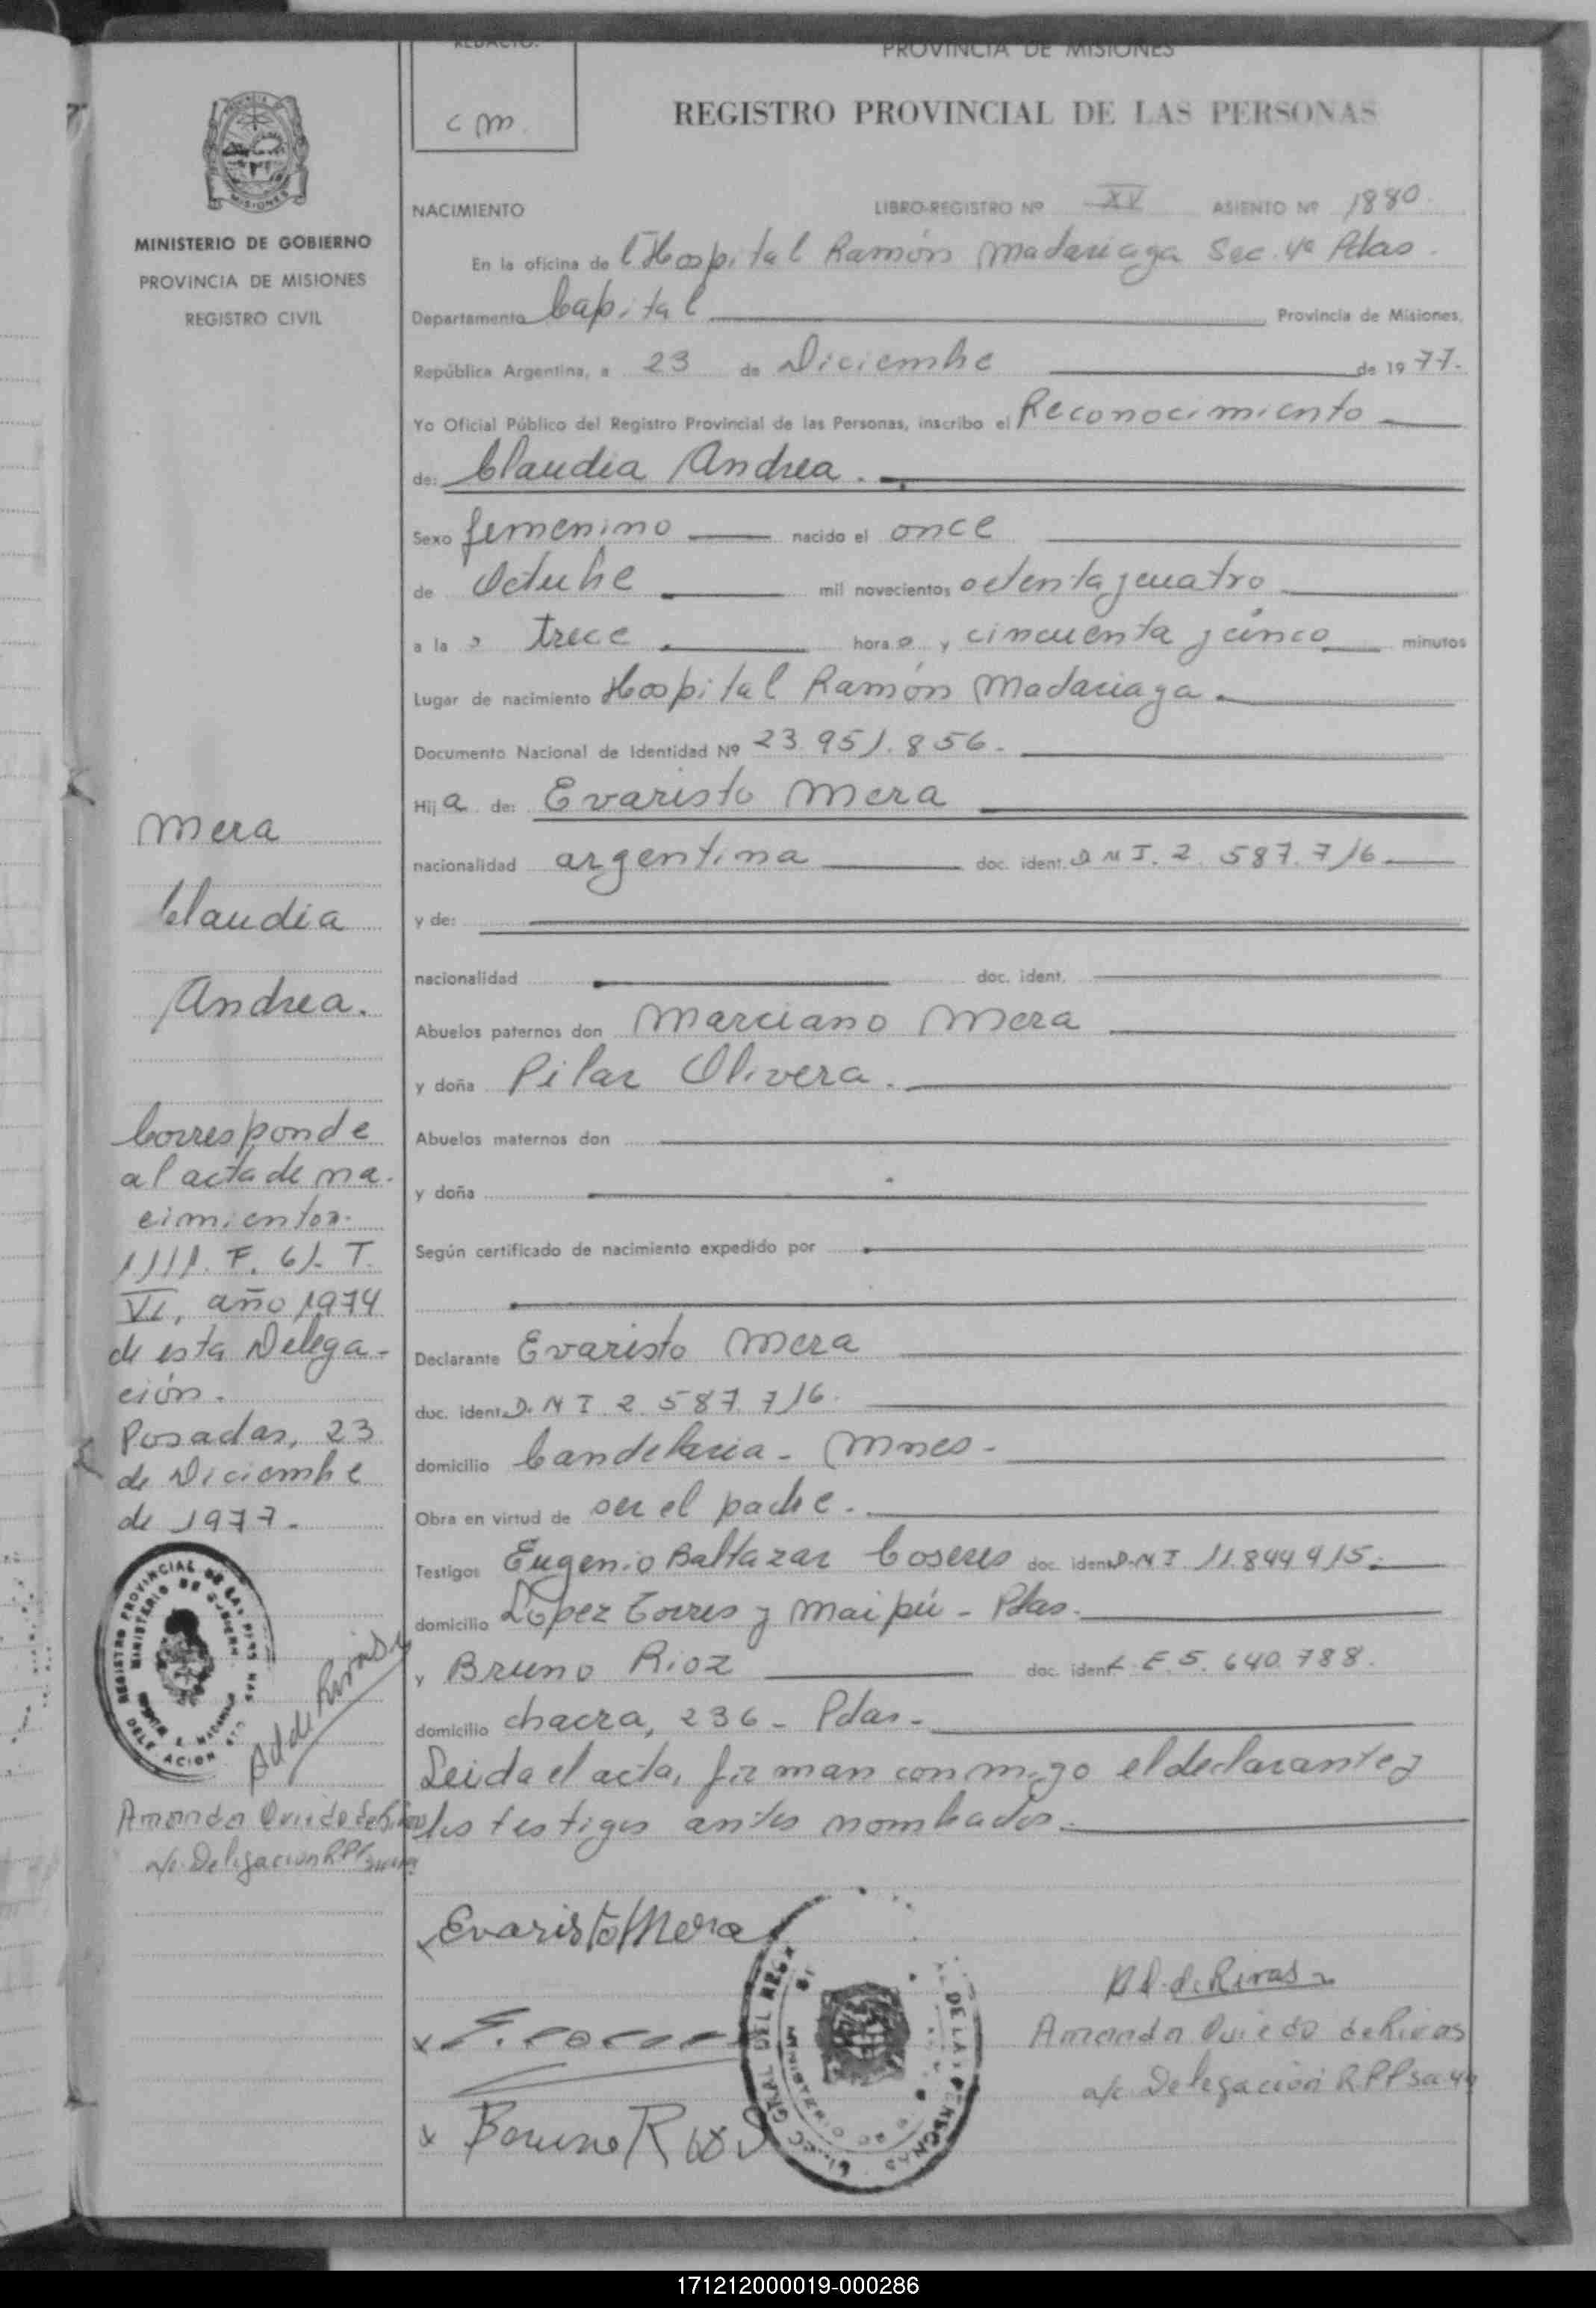 REDACTO:
c m.
PROVINCIA DE MISIONES
REGISTRO PROVINCIAL DE LAS PERSONAS
MISIONES
MINISTERIO DE GOBIERNO
PROVINCIA DE MISIONES
REGISTRO CIVIL
NACIMIENTO LIBRO-REGISTRO Nº XV ASIENTO Nº 1880.
En la oficina de Hospital Ramón Madariaga Sec. 4ª Pdas.
Departamento Capital Provincia de Misiones,
República Argentina, a 23 de Diciembre de 1977.
Yo Oficial Público del Registro Provincial de las Personas, inscribo el Reconocimiento
de: Claudia Andrea.
Sexo femenino nacido el once
de Octubre mil novecientos setenta y cuatro
a la s trece hora s y cincuenta y cinco minutos
Lugar de nacimiento Hospital Ramón Madariaga.
Documento Nacional de Identidad Nº 23.951.856.
Hij a de: Evaristo Mera
nacionalidad argentina doc. ident. D N I. 2.587.716.
y de:
nacionalidad doc. ident.
Abuelos paternos don Marciano Mera
y doña Pilar Olivera.
Abuelos maternos don
y doña
Según certificado de nacimiento expedido por
Declarante Evaristo Mera
doc. ident. D. N I 2.587.716.
domicilio Candelaria - Mnes.
Obra en virtud de ser el padre.
Testigos Eugenio Baltazar doc. ident. D.N.I 11.844.915.
domicilio López Torres y Maipú - Pdas.
y Bruno Rioz doc. ident. L. E 5.640.788.
domicilio chacra, 236 - Pdas.
Leida el acta, firman conmigo el declarante y
los testigos antes nombrados.
Mera
Claudia
Andrea.
Corresponde
al acta de na-
cimiento nº
1111. F. 61. T.
VI, año 1974
de esta Delega-
ción.
Posadas, 23
de Diciembre
de 1977.
REGISTRO PROVINCIAL DE LAS PERSONAS
MINISTERIO DE GOBIERNO
DELEGACION
Ad de Rivas
Amanda Oviedo de Rivas
a/c. Delegación
Evaristo Mera
x
x Bruno Rios
A O. de Rivas
Amanda Oviedo de Rivas
a/c. Delegación R.P.P sa 4ª
171212000019-000286